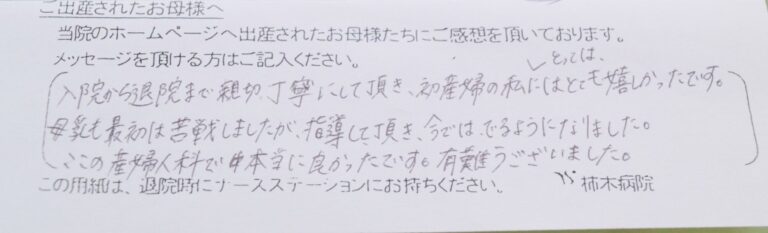 ご出産されたお母様へ
当院のホームページへ出産されたお母様たちにご感想を頂いております。
メッセージを頂ける方はご記入ください。
とっては、
入院から退院まで親切、丁寧にして頂き、初産婦の私にはとても嬉しかったです。
母乳も最初は苦戦しましたが、指導して頂き、今では、でるようになりました。
ここの産婦人科で本当に良かったです。有難うございました。
この用紙は、退院時にナースステーションにお持ちください。 柿木病院